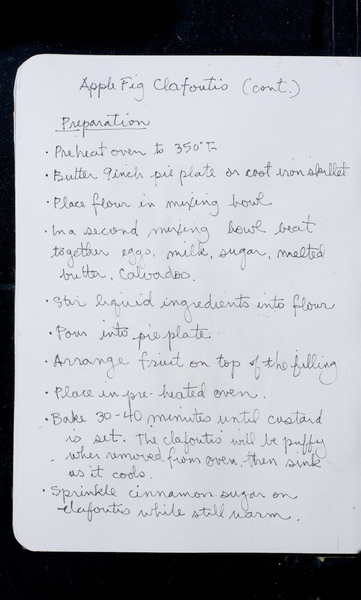 Apple Fig Clafoutis (cont.)
Preparation
· Preheat oven to 350°F
· Butter 9inch pie plate or cast iron skillet
· Place flour in mixing bowl
· In a second mixing bowl beat
together eggs, milk, sugar, melted
butter, Calvados.
· Stir liquid ingredients into flour
· Pour into pie plate
· Arrange fruit on top of the filling
· Place in pre-heated oven.
· Bake 30-40 minutes until custard
is set. The clafoutis will be puffy
when removed from oven, then sink
as it cools.
· Sprinkle cinnamon sugar on
clafoutis while still warm.